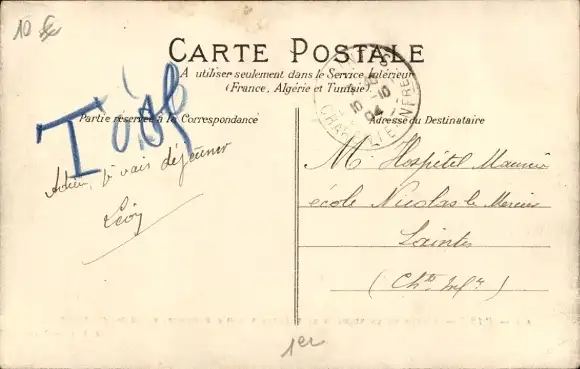 10
CARTE POSTALE
A utiliser seulement dans le Service Intérieur
(France, Algérie et Tunisie).
Partie réservée à la Correspondance
Adresse du Destinataire
T
10 - 10
04
CHARENTE-INFRE
Adieu, je vais déjeuner
Léon
M Hospitel Maurice
école Nicolas le Mercier
Saintes
(Chte Infre)
1er